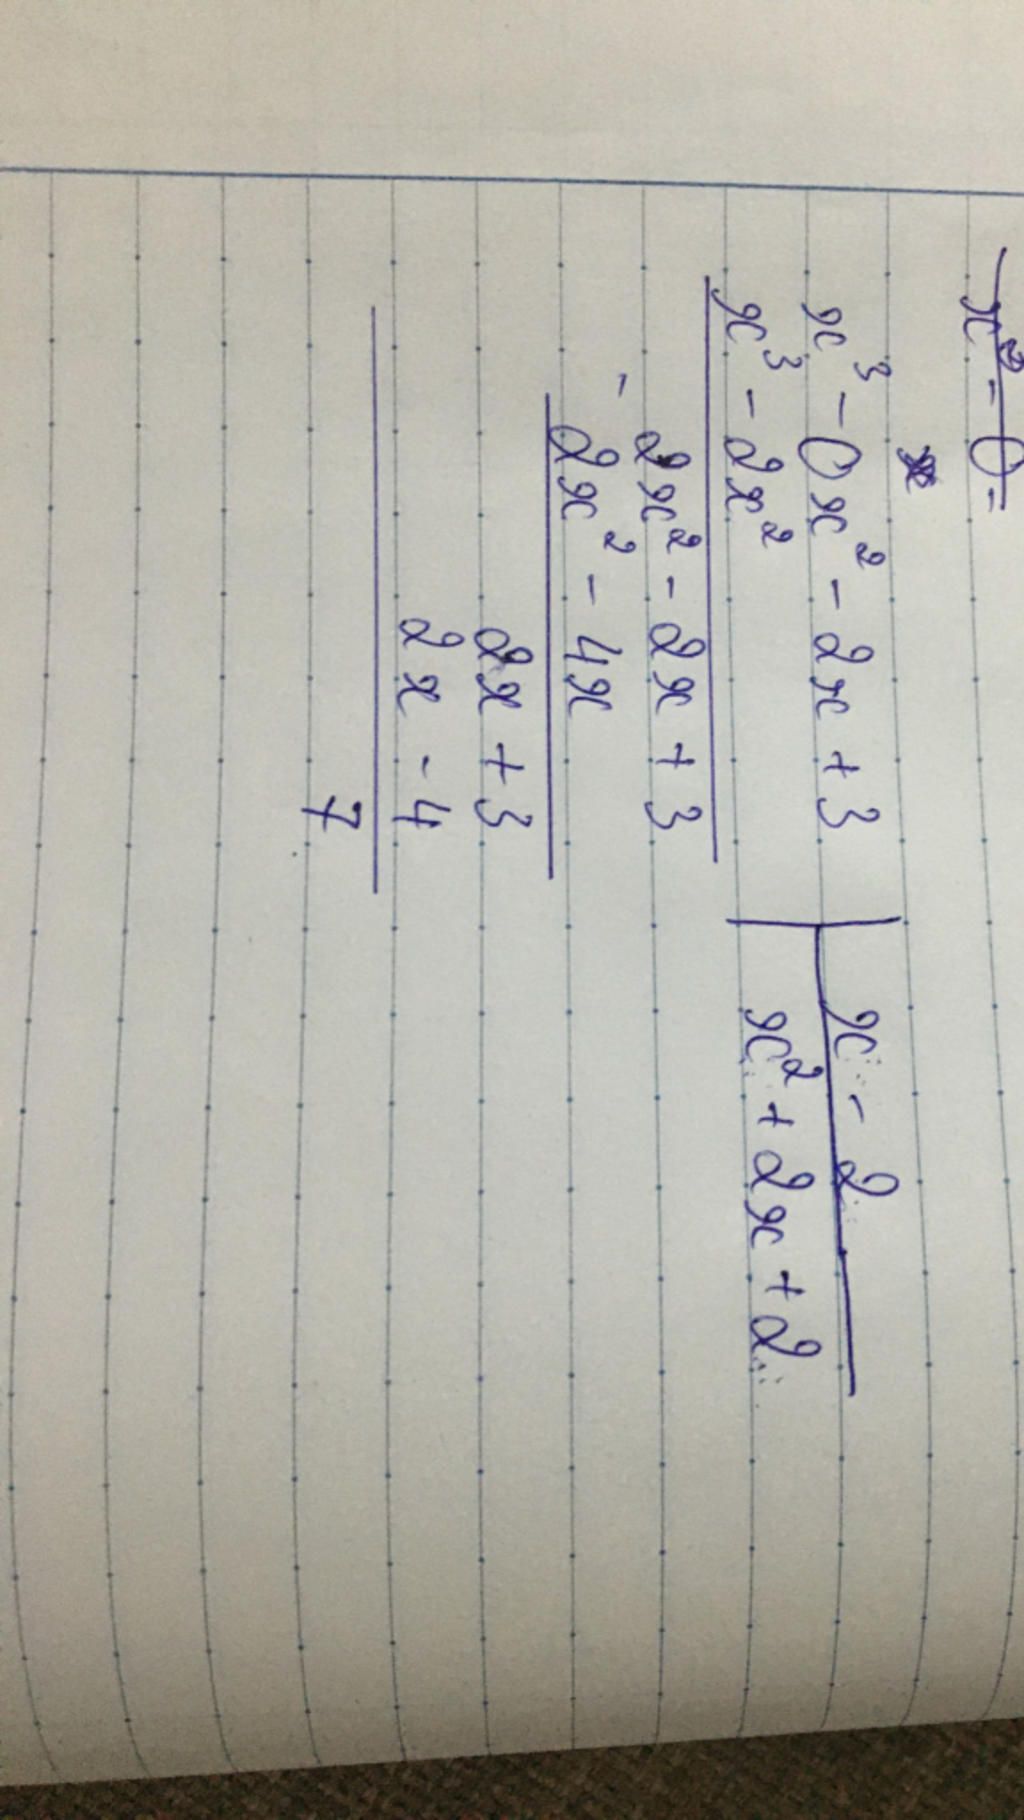 x² - 0 =
x³ - 0x² - 2x + 3 | x - 2
x³ - 2x² | x² + 2x + 2
2x² - 2x + 3
-
2x² - 4x
2x + 3
2x - 4
7